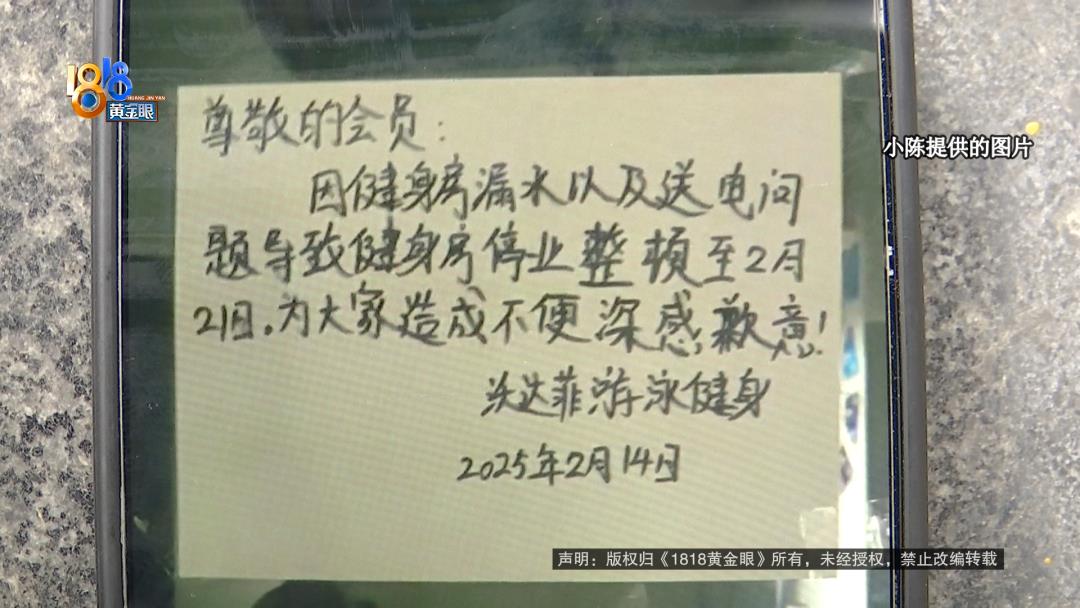 1818
HUANG JIN YAN
黄金眼
小陈提供的图片
尊敬的会员：
因健身房漏水以及送电问
题导致健身房停业整顿至2月
21日。为大家造成不便深感歉意！
沃达菲游泳健身
2025年2月14日
声明：版权归《1818黄金眼》所有，未经授权，禁止改编转载